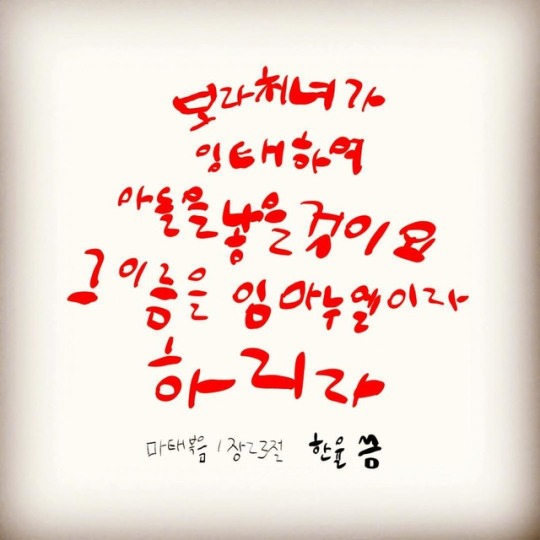 보라 처녀가
잉태하여
아들을 낳을 것이요
그 이름을 임마누엘이라
하리라
마태복음 1장 23절 한율 씀